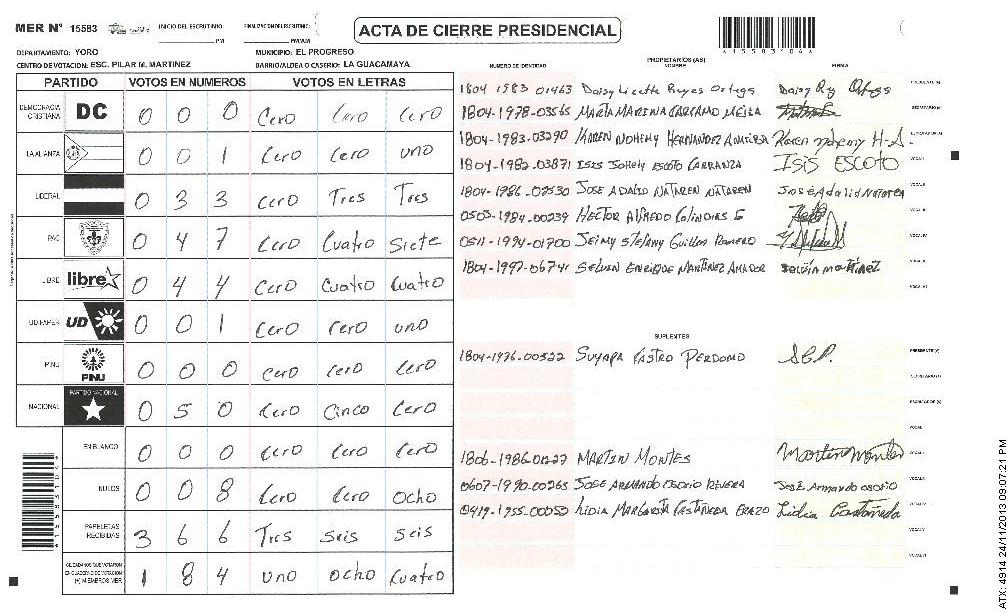 MER N° 15583
INICIO DEL ESCRUTINIO:
PM
FINALIZACION DEL ESCRUTINIO:
PM/AM
ACTA DE CIERRE PRESIDENCIAL
DEPARTAMENTO: YORO
MUNICIPIO: EL PROGRESO
CENTRO DE VOTACION: ESC. PILAR M. MARTINEZ
BARRIO/ALDEA O CASERIO: LA GUACAMAYA
PARTIDO VOTOS EN NUMEROS VOTOS EN LETRAS
DEMOCRACIA CRISTIANA DC 0 0 0 Cero Cero Cero
LA ALIANZA 0 0 1 Cero Cero uno
LIBERAL 0 3 3 Cero Tres Tres
PAC 0 4 7 Cero Cuatro Siete
LIBRE libre 0 4 4 Cero Cuatro Cuatro
UD-FAPER UD 0 0 1 Cero Cero uno
PINU PINU 0 0 0 Cero Cero Cero
NACIONAL PARTIDO NACIONAL 0 5 0 Cero Cinco Cero
EN BLANCO 0 0 0 Cero Cero Cero
NULOS 0 0 8 Cero Cero Ocho
PAPELETAS RECIBIDAS 3 6 6 Tres Seis Seis
CIUDADANOS QUE VOTARON EN CUADERNO DE VOTACION (+) MIEMBROS MER 1 8 4 uno ocho Cuatro
NUMERO DE IDENTIDAD
PROPIETARIOS (AS)
NOMBRE
FIRMA
1804 1983 01463 Daisy Lizette Reyes Ortega Daisy Ry Ortega PRESIDENTE (A)
1804-1978-03565 MARTA MARINA CARCAMO MEJIA SECRETARIO (A)
1804-1983-03290 KAREN NOHEMY HERNANDEZ Karen nohemy H-A ESCRUTADOR (A)
1804-1982-03871 ISIS JOHELY ESCOTO CARRANZA ISIS ESCOTO VOCAL I
1804-1986-02530 JOSE ADALID NATAREN NATAREN José Adalid Nataren VOCAL II
0503-1984-00239 HECTOR ALFREDO Colindres VOCAL III
0511-1994-01700 JEIMY STEFANY Guillen ROMERO VOCAL IV
1804-1997-06741 SELVIN ENRIQUE MARTINEZ AMADOR selvin martinez VOCAL V
VOCAL VI
SUPLENTES
1804-1976-00522 SUYAPA CASTRO PERDOMO S.C.P. PRESIDENTE (A)
SECRETARIO (A)
ESCRUTADOR (A)
VOCAL I
1806-1986-01227 MARTIN MONTES Martin Montes
0607-1990-00265 JOSE ARMANDO OSORIO RIVERA José Armando osorio
0419-1955-00053 LIDIA MARGARITA CASTAÑEDA ERAZO Lidia Castañeda
VOCAL V
VOCAL VI
*15583104*
*15583104*
ATX: 4914 24/11/2013 09:07:21 PM